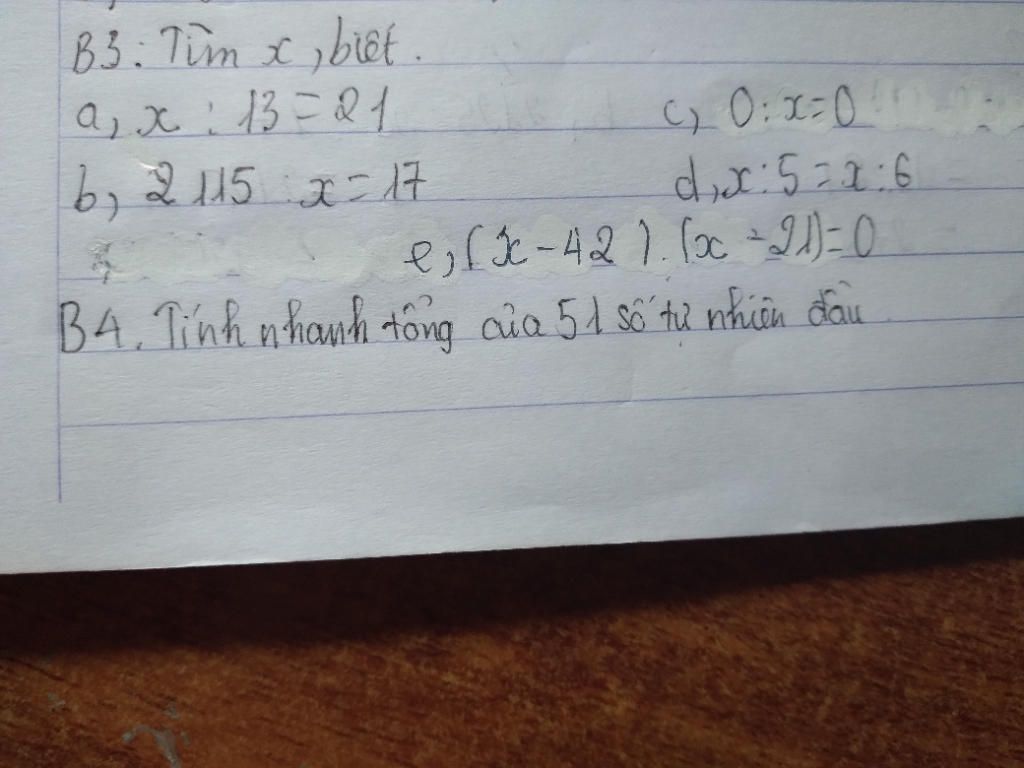 B3: Tìm x, biết.
a, x : 13 = 21 c, 0 : x = 0
b, 2 115 : x = 17 d, x : 5 = x : 6
e, (x - 42). (x - 21) = 0
B4. Tính nhanh tổng của 51 số tự nhiên đầu